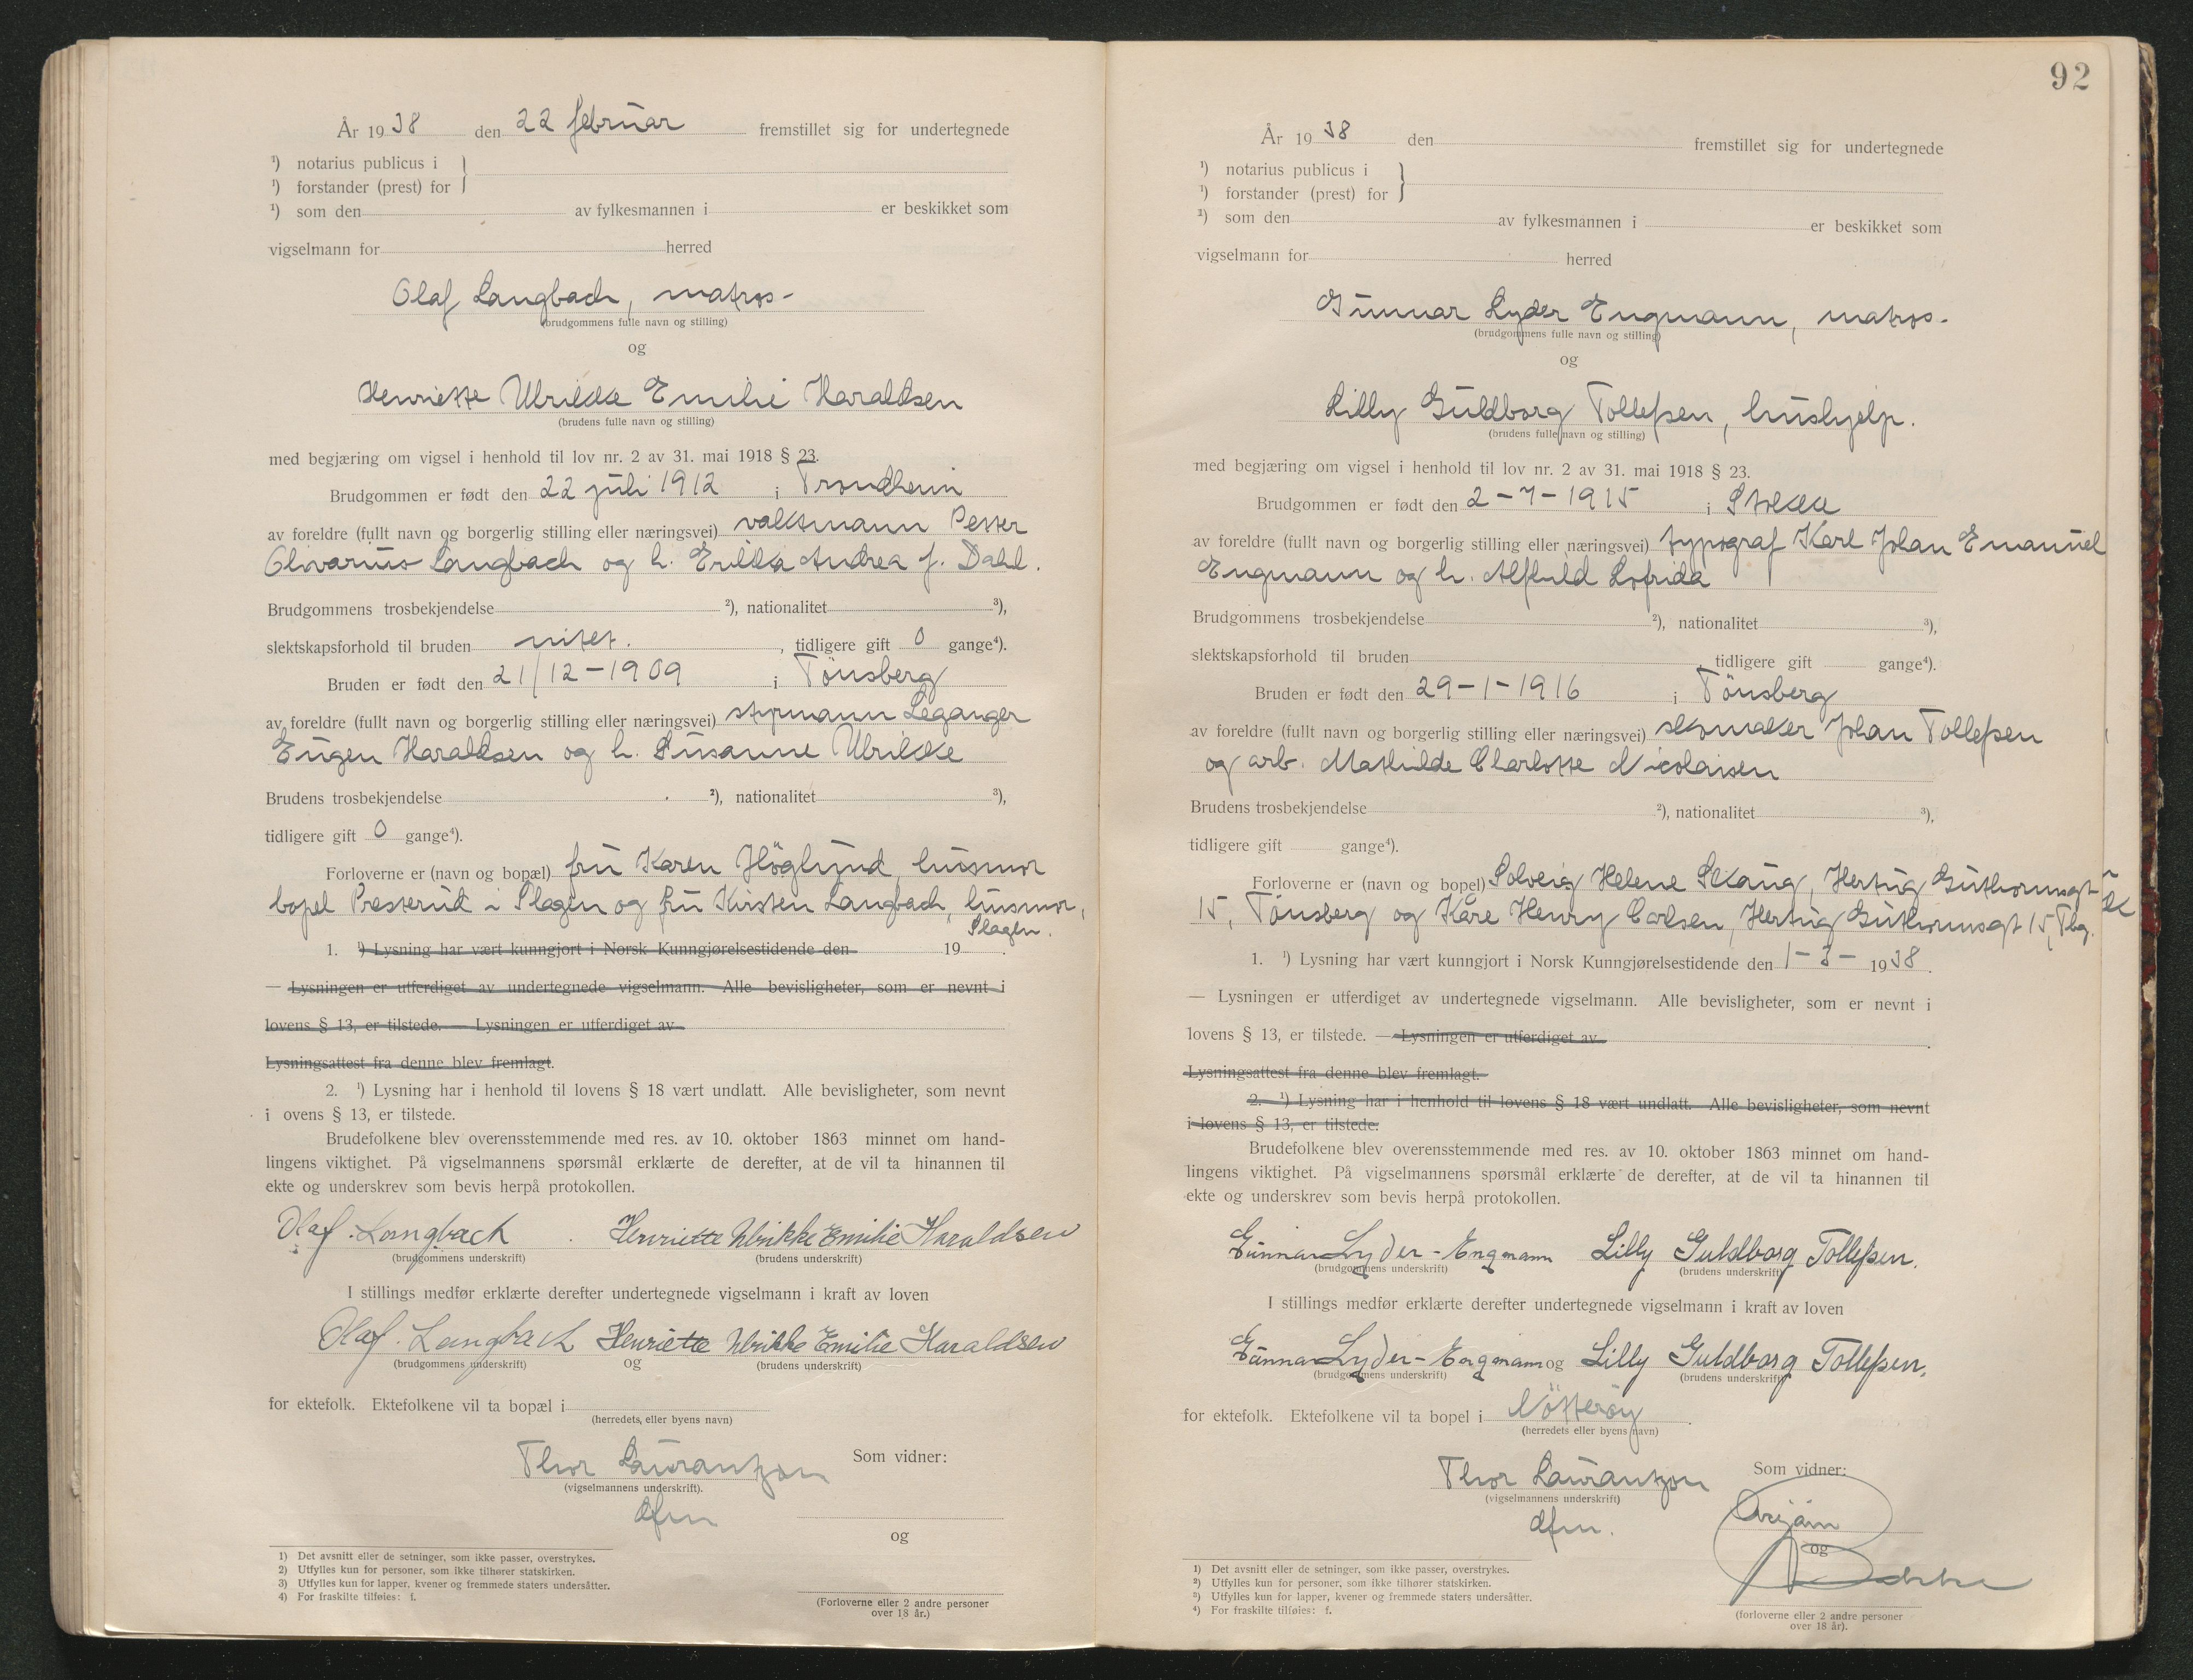 År 1938 den 22 februar fremstillet sig for undertegnede
¹) notarius publicus i }
¹) forstander (prest) for
¹) som den av fylkesmannen i er beskikket som
vigselmann for herred
Olaf Langbach, matros-
(brudgommens fulle navn og stilling)
og
Henriette Ulrikke Emilie Haraldsen
(brudens fulle navn og stilling)
med begjæring om vigsel i henhold til lov nr. 2 av 31. mai 1918 § 23.
Brudgommen er født den 22 juli 1912 i Trondheim
av foreldre (fullt navn og borgerlig stilling eller næringsvei) vaktmann Petter
Olivarius Langbach og h. Erikka Andrea f. Dahl.
Brudgommens trosbekjendelse ²), nationalitet ³),
slektskapsforhold til bruden intet. , tidligere gift 0 gange⁴).
Bruden er født den 21/12-1909 i Tönsberg
av foreldre (fullt navn og borgerlig stilling eller næringsvei) styrmann Leganger
Eugen Haraldsen og h. Susanne Ulrikke
Brudens trosbekjendelse ²), nationalitet ³),
tidligere gift 0 gange⁴).
Forloverne er (navn og bopæl) fru Karen Höglund, husmor
bopel Presterud i Slagen og fru Kirsten Langbach, husmor,
Slagen.
1. ¹) Lysning har vært kunngjort i Norsk Kunngjørelsestidende den 19 .
— Lysningen er utferdiget av undertegnede vigselmann. Alle bevisligheter, som er nevnt i
lovens § 13, er tilstede. — Lysningen er utferdiget av
Lysningsattest fra denne blev fremlagt.
2. ¹) Lysning har i henhold til lovens § 18 vært undlatt. Alle bevisligheter, som nevnt
i ovens § 13, er tilstede.
Brudefolkene blev overensstemmende med res. av 10. oktober 1863 minnet om hand-
lingens viktighet. På vigselmannens spørsmål erklærte de derefter, at de vil ta hinannen til
ekte og underskrev som bevis herpå protokollen.
Olaf Langbach Henriette Ulrikke Emilie Haraldsen
(brudgommens underskrift) (brudens underskrift)
I stillings medfør erklærte derefter undertegnede vigselmann i kraft av loven
Olaf Langbach Henriette Ulrikke Emilie Haraldsen
(brudgommens underskrift) og (brudens underskrift)
for ektefolk. Ektefolkene vil ta bopæl i
(herredets, eller byens navn)
Thor Laurantzon Som vidner:
(vigselmannens underskrift).
dfm
og
1) Det avsnitt eller de setninger, som ikke passer, overstrykes.
2) Utfylles kun for personer, som ikke tilhører statskirken.
3) Utfylles kun for lapper, kvener og fremmede staters undersåtter.
4) For fraskilte tilføies: f.
(Forloverne eller 2 andre personer
over 18 år.)
92
År 1938 den fremstillet sig for undertegnede
¹) notarius publicus i }
¹) forstander (prest) for
¹) som den av fylkesmannen i er beskikket som
vigselmann for herred
Gunnar Lyder Engmann, matros.
(brudgommens fulle navn og stilling)
og
Lilly Guldborg Tollefsen, hushjelp.
(brudens fulle navn og stilling)
med begjæring om vigsel i henhold til lov nr. 2 av 31. mai 1918 § 23.
Brudgommen er født den 2-7-1915 i Stokke
av foreldre (fullt navn og borgerlig stilling eller næringsvei) typograf Karl Johan Emanuel
Engmann og h. Alfhild Lofrida
Brudgommens trosbekjendelse ²), nationalitet ³),
slektskapsforhold til bruden , tidligere gift gange⁴).
Bruden er født den 29-1-1916 i Tönsberg
av foreldre (fullt navn og borgerlig stilling eller næringsvei) skomaker Johan Tollefsen
og arb. Mathilde Charlotte Nicolaisen
Brudens trosbekjendelse ²), nationalitet ³),
tidligere gift gange⁴).
Forloverne er (navn og bopel) Solveig Helene Skaug, Hertug Guthormsgt
15, Tönsberg og Kåre Henry Carlsen, Hertug Guthormsgt 15, Tbg.
1. ¹) Lysning har vært kunngjort i Norsk Kunngjørelsestidende den 1-3- 1938.
— Lysningen er utferdiget av undertegnede vigselmann. Alle bevisligheter, som er nevnt i
lovens § 13, er tilstede. — Lysningen er utferdiget av .
Lysningsattest fra denne blev fremlagt.
2. ¹) Lysning har i henhold til lovens § 18 vært undlatt. Alle bevisligheter, som nevnt
i lovens § 13, er tilstede.
Brudefolkene blev overensstemmende med res. av 10. oktober 1863 minnet om hand-
lingens viktighet. På vigselmannens spørsmål erklærte de derefter, at de vil ta hinannen til
ekte og underskrev som bevis herpå protokollen.
Gunnar Lyder-Engmann Lilly Guldborg Tollefsen.
(brudgommens underskrift) (brudens underskrift)
I stillings medfør erklærte derefter undertegnede vigselmann i kraft av loven
Gunnar Lyder-Engmann og Lilly Guldborg Tollefsen.
(brudgommens underskrift) (brudens underskrift)
for ektefolk. Ektefolkene vil ta bopel i Nötteröy .
(herredets eller byens navn)
Thor Laurantzon Som vidner:
(vigselmannens underskrift)
dfm.
og
1) Det avsnitt eller de setninger, som ikke passer, overstrykes.
²) Utfylles kun for personer, som ikke tilhører statskirken.
³) Utfylles kun for lapper, kvener og fremmede staters undersåtter.
⁴) For fraskilte tilføies: f.
(forloverne eller 2 andre personer
over 18 år).